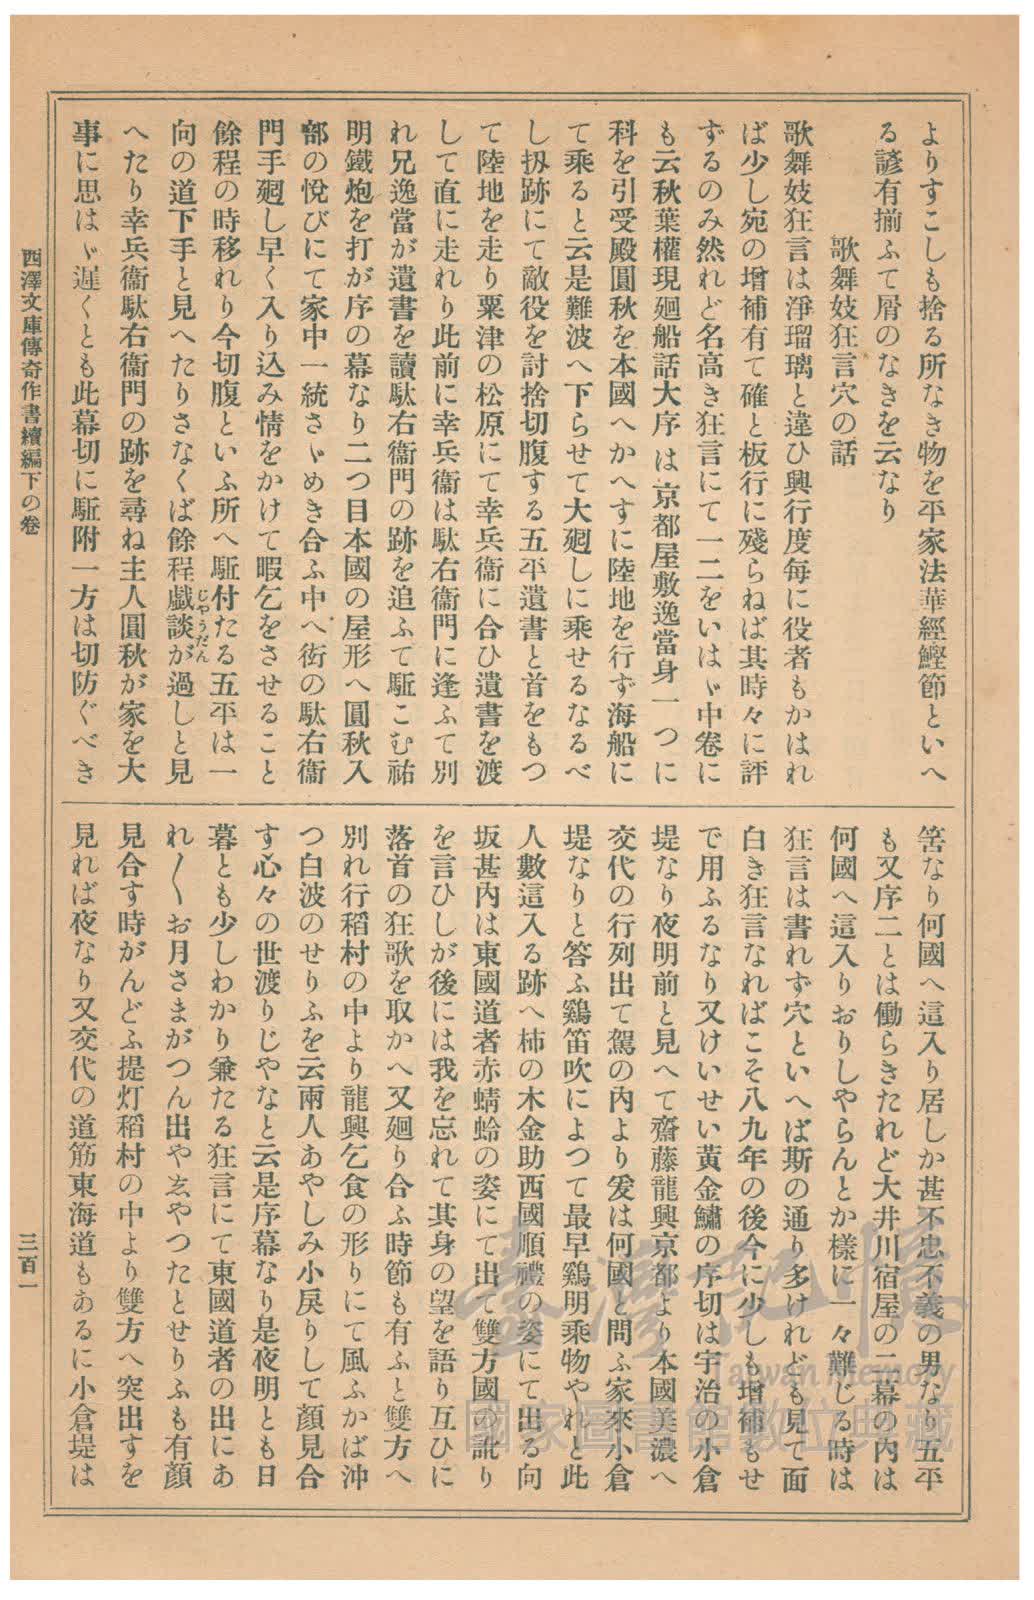 よりすこしも捨る所なき物を平家法華經鰹節といへ
る諺有揃ふて屑のなきを云なり
歌舞妓狂言穴の話
歌舞妓狂言は淨瑠璃と違ひ興行度每に役者もかはれ
ば少し宛の增補有て確と板行に殘らねば其時々に評
ずるのみ然れど名高き狂言にて一二をいはゞ中卷に
も云秋葉權現廻船話大序は京都屋敷逸當身一つに
科を引受殿圓秋を本國へかへすに陸地を行ず海船に
て乘ると云是難波へ下らせて大廻しに乘せるなるべ
し扨跡にて敵役を討捨切腹する五平遺書と首をもつ
て陸地を走り粟津の松原にて幸兵衞に合ひ遺書を渡
して直に走れり此前に幸兵衞は駄右衞門に逢ふて別
れ兄逸當が遺書を讀駄右衞門の跡を追ふて駈こむ祐
明鐵炮を打が序の幕なり二つ目本國の屋形へ圓秋入
部の悅びにて家中一統さゞめき合ふ中へ街の駄右衞
門手廻し早く入り込み情をかけて暇乞をさせること
餘程の時移れり今切腹といふ所へ駈付たる五平は一
向の道下手と見へたりさなくば餘程戲談が過しと見
じやうだん
へたり幸兵衞駄右衞門の跡を尋ね主人圓秋が家を大
事に思はゞ遲くとも此幕切に駈附一方は切防ぐべき
筈なり何國へ這入り居しか甚不忠不義の男なり五平
も又序二とは働らきたれど大井川宿屋の二幕の內は
何國へ這入りおりしやらんとか樣に一々難じる時は
狂言は書れず穴といへば斯の通り多けれども見て面
白き狂言なればこそ八九年の後今に少しも增補もせ
で用ふるなり又けいせい黃金鱐の序切は宇治の小倉
堤なり夜明前と見へて齋藤龍興京都より本國美濃へ
交代の行列出て駕の內より爰は何國と問ふ家來小倉
堤なりと答ふ鷄笛吹によつて最早鷄明乘物やれと此
人數這入る跡へ柿の木金助西國順禮の姿にて出る向
坂甚內は東國道者赤蜻蛉の姿にて出て雙方國の訛り
を言ひしが後には我を忘れて其身の望を語り互ひに
落首の狂歌を取かへ又廻り合ふ時節も有ふと雙方へ
別れ行稻村の中より龍興乞食の形りにて風ふかば沖
つ白波のせりふを云兩人あやしみ小戾りして顏見合
す心々の世渡りじやなと云是序幕なり是夜明とも日
暮とも少しわかり兼たる狂言にて東國道者の出にあ
れ〳〵お月さまがつん出やゑやつたとせりふも有顏
見合す時がんどふ提灯稻村の中より雙方へ突出すを
見れば夜なり又交代の道筋東海道もあるに小倉堤は
西澤文庫傳奇作書續編下の卷
三百一
臺灣記憶
Taiwan Memory
國家圖書館數位典藏